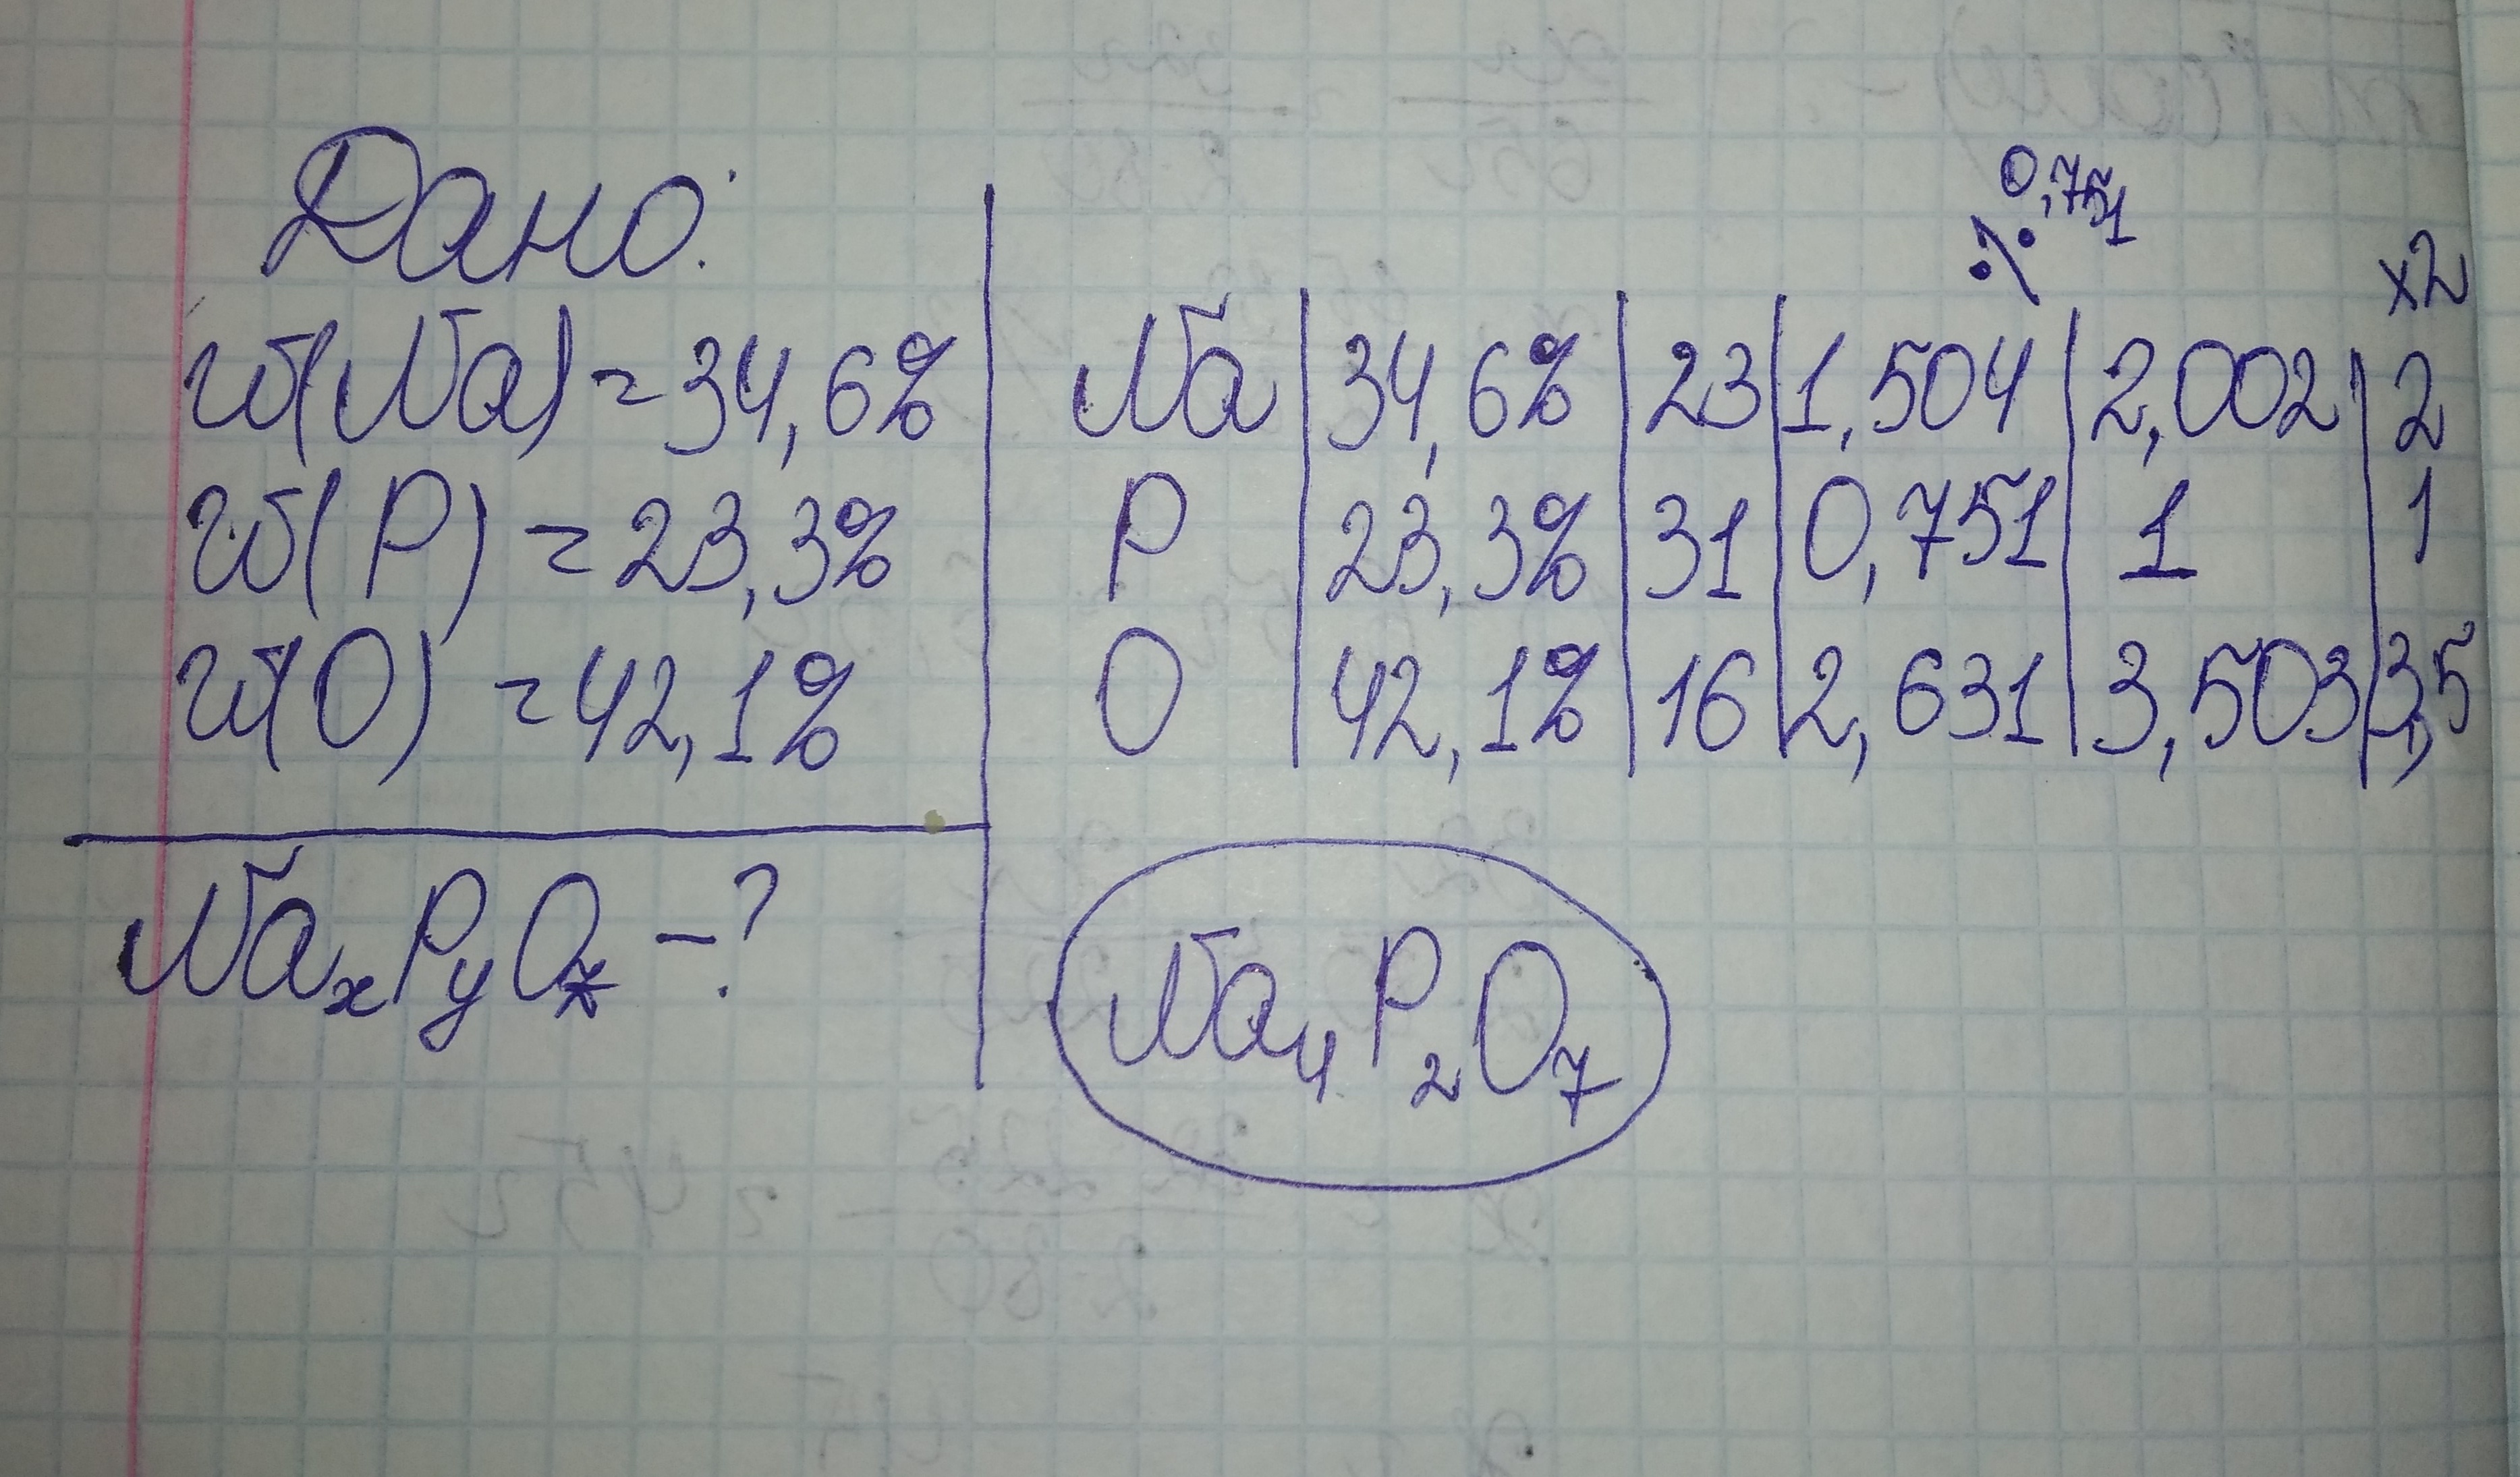 Дано:
w(Na) = 34,6%
w(P) = 23,3%
w(O) = 42,1%
NaxPyOz - ?
: 0,751
x2
Na | 34,6% | 23 | 1,504 | 2,002 | 2
P | 23,3% | 31 | 0,751 | 1 | 1
O | 42,1% | 16 | 2,631 | 3,503 | 3,5
Na4P2O7